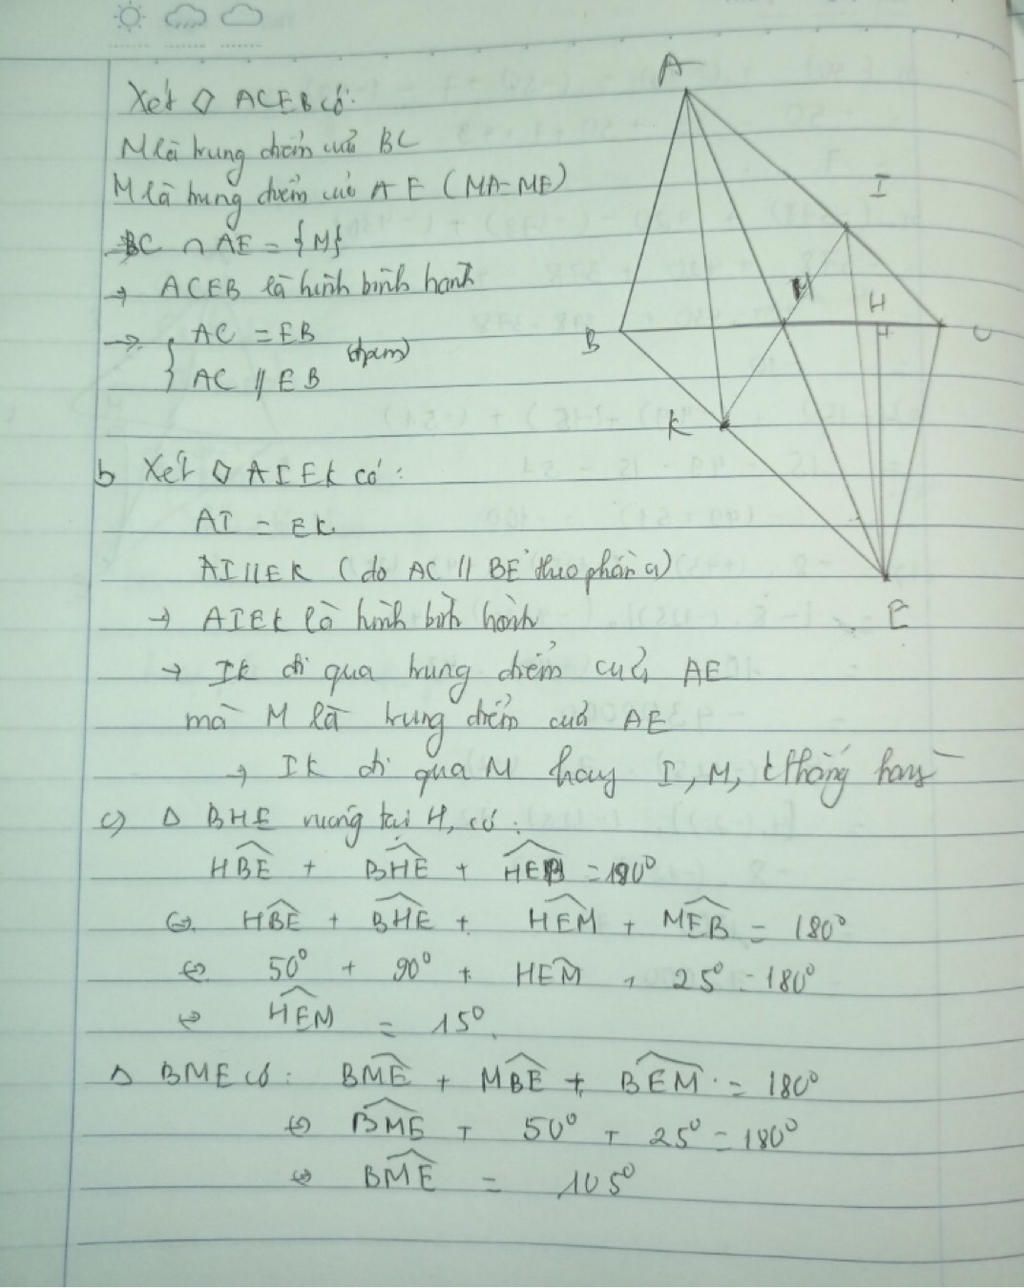 Xét ◇ ACEB có:
M là trung điểm của BC
M là trung điểm của AE (MA=ME)
BC ∩ AE = {M}
→ ACEB là hình bình hành
→ { AC = EB
AC // EB (đpcm)
b Xét ◇ AIEK có:
AI = EK
AI // EK (do AC // BE theo phần a)
→ AIEK là hình bình hành
→ IK đi qua trung điểm của AE
mà M là trung điểm của AE
→ IK đi qua M hay I, M, K thẳng hàng
c) Δ BHE vuông tại H, có:
HBE + BHE + HEB = 180°
⇔ HBE + BHE + HEM + MEB = 180°
⇔ 50° + 90° + HEM + 25° = 180°
⇔ HEM = 15°.
Δ BME có: BME + MBE + BEM = 180°
⇔ BME + 50° + 25° = 180°
⇔ BME = 105°
A
I
M
H
B
C
K
E